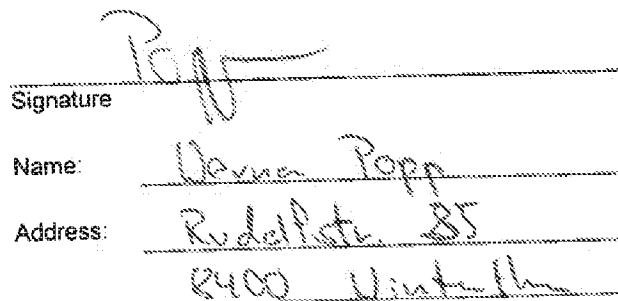 Popp
Signature
Name: Verna Popp
Address: Rudolfstr. 85
8400 Winterthur